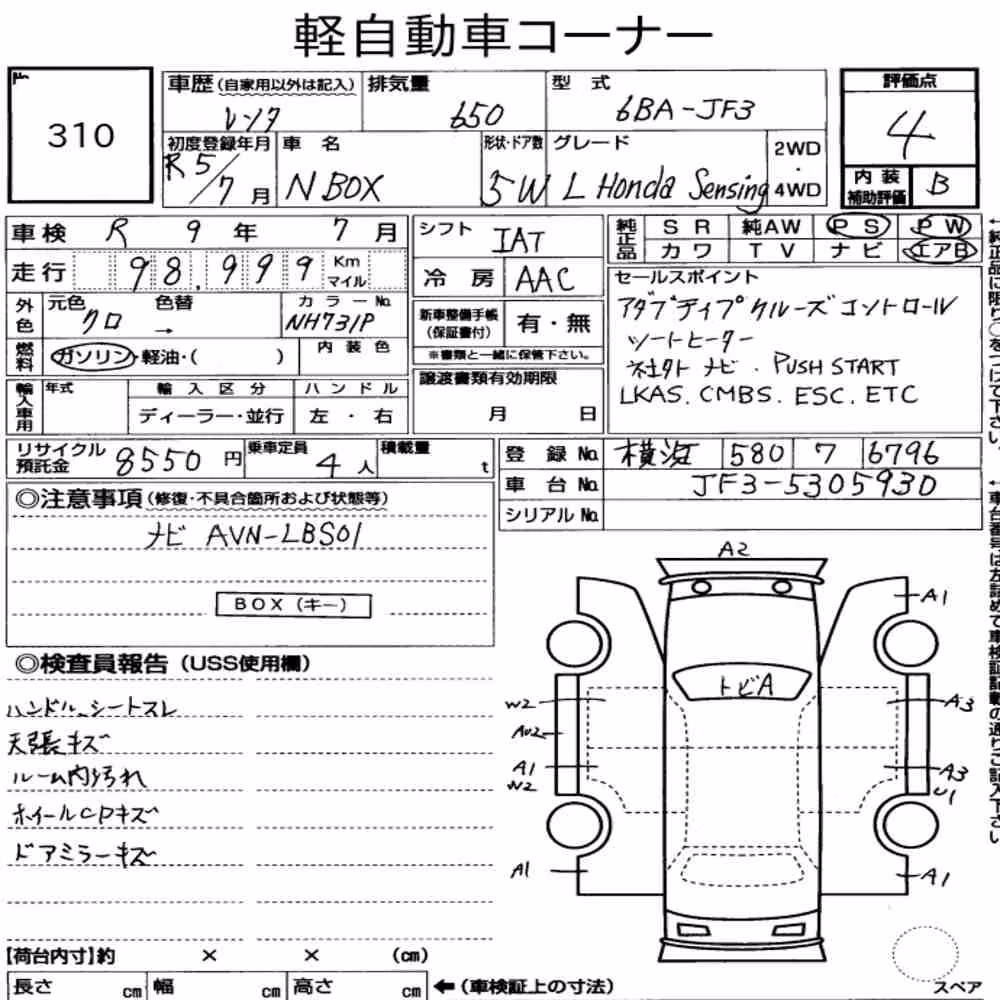 軽自動車コーナー
310
車歴(自家用以外は記入) 排気量 型式 評価点
レンタ 650 6BA-JF3 4
初度登録年月 車名 形状・ドア数 グレード 2WD・4WD
R5/7月 N BOX 5W L Honda Sensing
内装補助評価 B
車検 R 9年 7月
走行 98,999 Km マイル
シフト IAT
冷房 AAC
純正品 SR 純AW PS PW
カワ TV ナビ エアB
外色 元色 色替 カラーNo.
クロ → NH731P
燃料 ガソリン・軽油・( ) 内装色
新車整備手帳(保証書付) 有・無
※書類と一緒に保管下さい。
セールスポイント
アダプティブクルーズコントロール
シートヒーター
社外ナビ. PUSH START
LKAS. CMBS. ESC. ETC
輸入車用 年式 輸入区分 ハンドル
ディーラー・並行 左・右
譲渡書類有効期限
月 日
リサイクル預託金 8550円 乗車定員 4人 積載量 t
登録No. 横浜 580 7 6796
車台No. JF3-5305930
シリアルNo.
◎注意事項(修復・不具合箇所および状態等)
ナビ AVN-LBS01
BOX(キー)
◎検査員報告(USS使用欄)
ハンドル、シートスレ
天張キズ
ルーム内汚れ
ホイールCPキズ
ドアミラーキズ
A2
A1
トビA
W2
A3
AU2
A1
W2
A3
U1
A1
A1
スペア
【荷台内寸】約 × × (cm)
長さ cm 幅 cm 高さ cm ←(車検証上の寸法)